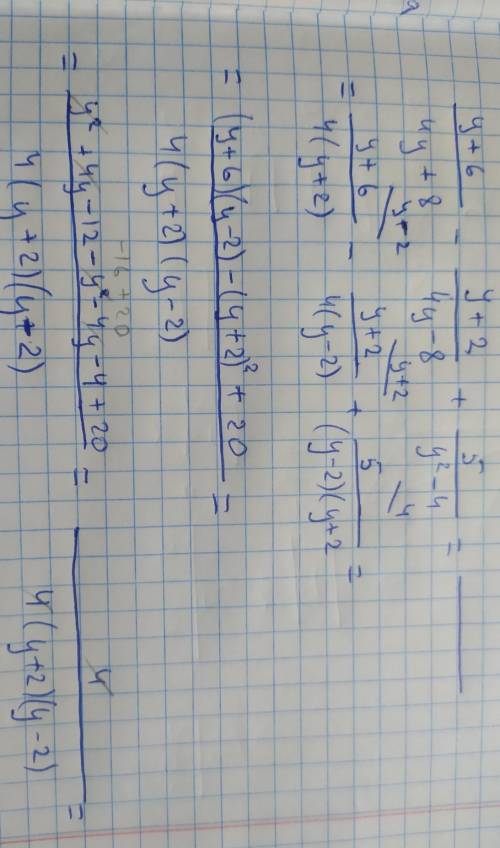 (y+6)/(4y+8) - (y+2)/(4y-8) + 5/(y²-4) =
y-2 y+2 4
= (y+6)/(4(y+2)) - (y+2)/(4(y-2)) + 5/((y-2)(y+2 =
= ((y+6)(y-2)-(y+2)²+20)/(4(y+2)(y-2)) =
-16+20
= (y²+4y-12-y²-4y-4+20)/(4(y+2)(y-2)) = 4/(4(y+2)(y-2)) =